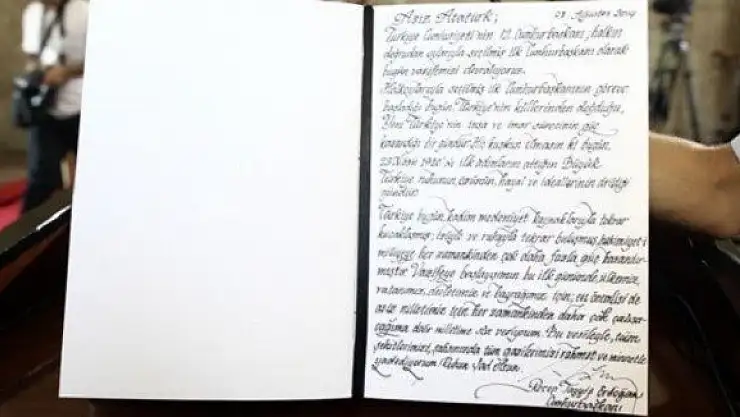 Aziz Atatürk; 28 Ağustos 2014
Türkiye Cumhuriyeti'nin 12. Cumhurbaşkanı, halkın
doğrudan oylarıyla seçilmiş ilk Cumhurbaşkanı olarak
bugün vazifemizi devralıyoruz.
Halkoylarıyla seçilmiş ilk Cumhurbaşkanının göreve
başladığı bugün, Türkiye'nin küllerinden doğduğu,
Yeni Türkiye'nin inşa ve imar sürecinin güç
kazandığı bir gündür. Hiç kuşkun olmasın ki bugün,
23 Nisan 1920'de ilk adımlarını attığın Büyük
Türkiye ruhunun, özünün, hayal ve ideallerinin dirildiği
gündür.
Türkiye bugün, kadim medeniyet kaynaklarıyla tekrar
kucaklaşmış; özüyle ve ruhuyla tekrar buluşmuş, hakimiyet-i
milliyye her zamankinden çok daha fazla güç kazandır-
mıştır. Vazifeye başlayışımın bu ilk gününde, ülkemiz,
vatanımız, devletimiz ve bayrağımız için; en önemlisi de
aziz milletimiz için her zamankinden daha çok çalışa-
cağıma dair milletime söz veriyorum. Bu vesileyle, tüm
şehitlerimizi, şahsınızda tüm gazilerimizi rahmet ve minnetle
yadediyorum. Ruhun Şad Olsun.
Recep Tayyip Erdoğan
Cumhurbaşkanı